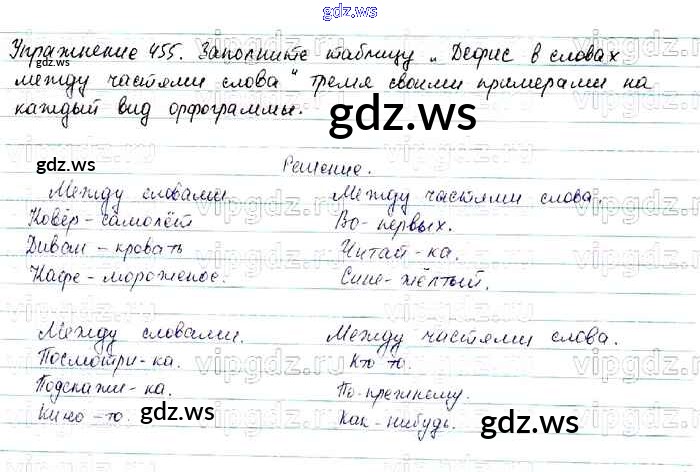 gdz.ws
Упражнение 455. Заполните таблицу „Дефис в словах
между частями слова" тремя своими примерами на
каждый вид орфограммы.
gdz.ws
gdz.ws
Решение.
Между словами. Между частями слова.
Ковёр-самолёт Во-первых.
Диван-кровать Читай-ка.
Кафе-мороженое. Сине-жёлтый.
Между словами. Между частями слова.
Посмотри-ка. Кто то.
Подскажи-ка. По-прежнему.
Кино-то. Как-нибудь.
gdz.ws gdz.ws
vipgdz.ru